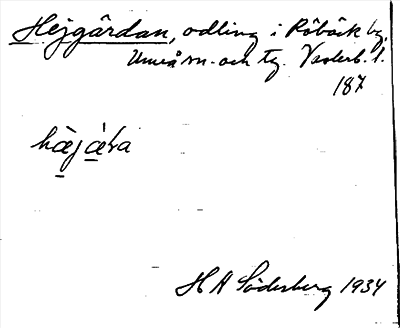 Hejgårdan, odling i Röbäck by,
Umeå sn. och tg. Vesterb. l.
187
H A Söderberg 1934